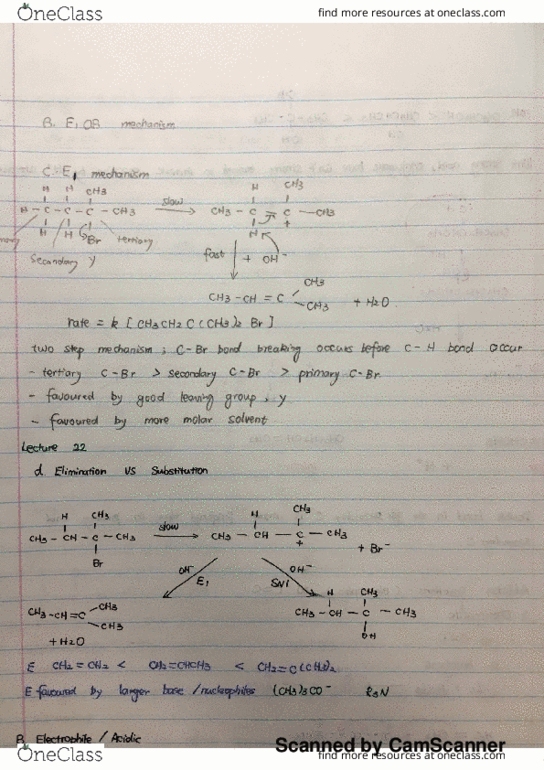 OneClass find more resources at oneclass.com
B. E, OB mechanism
C. E1 mechanism
H H CH3
H - C - C - C - CH3 slow CH3 - C - C - CH3
H H Br tertiary
H CH3
+
H
Secondary y
fast + OH-
CH3 - CH = C CH3 CH3 + H2O
rate = k [CH3CH2C(CH3)2 Br]
two step mechanism ; C-Br bond breaking occurs before C-H bond occur
- tertiary C-Br > secondary C-Br > primary C-Br
- favoured by good leaving group, y
- favoured by more molar solvent
Lecture 22
d. Elimination VS Substitution
H CH3 H CH3
CH3 - CH - C - CH3 slow CH3 - CH - C - CH3
Br + + Br-
OH- E1 SN1 OH-
CH3-CH=C CH3 CH3 H CH3
CH3 - CH - C - CH3
+ H2O OH
E CH2 = CH2 < CH2=CHCH3 < CH2=C(CH3)2
E favoured by larger base / nucleophiles (CH3)3CO- R3N
B. Electrophile / Acidic
Scanned by CamScanner
OneClass find more resources at oneclass.com